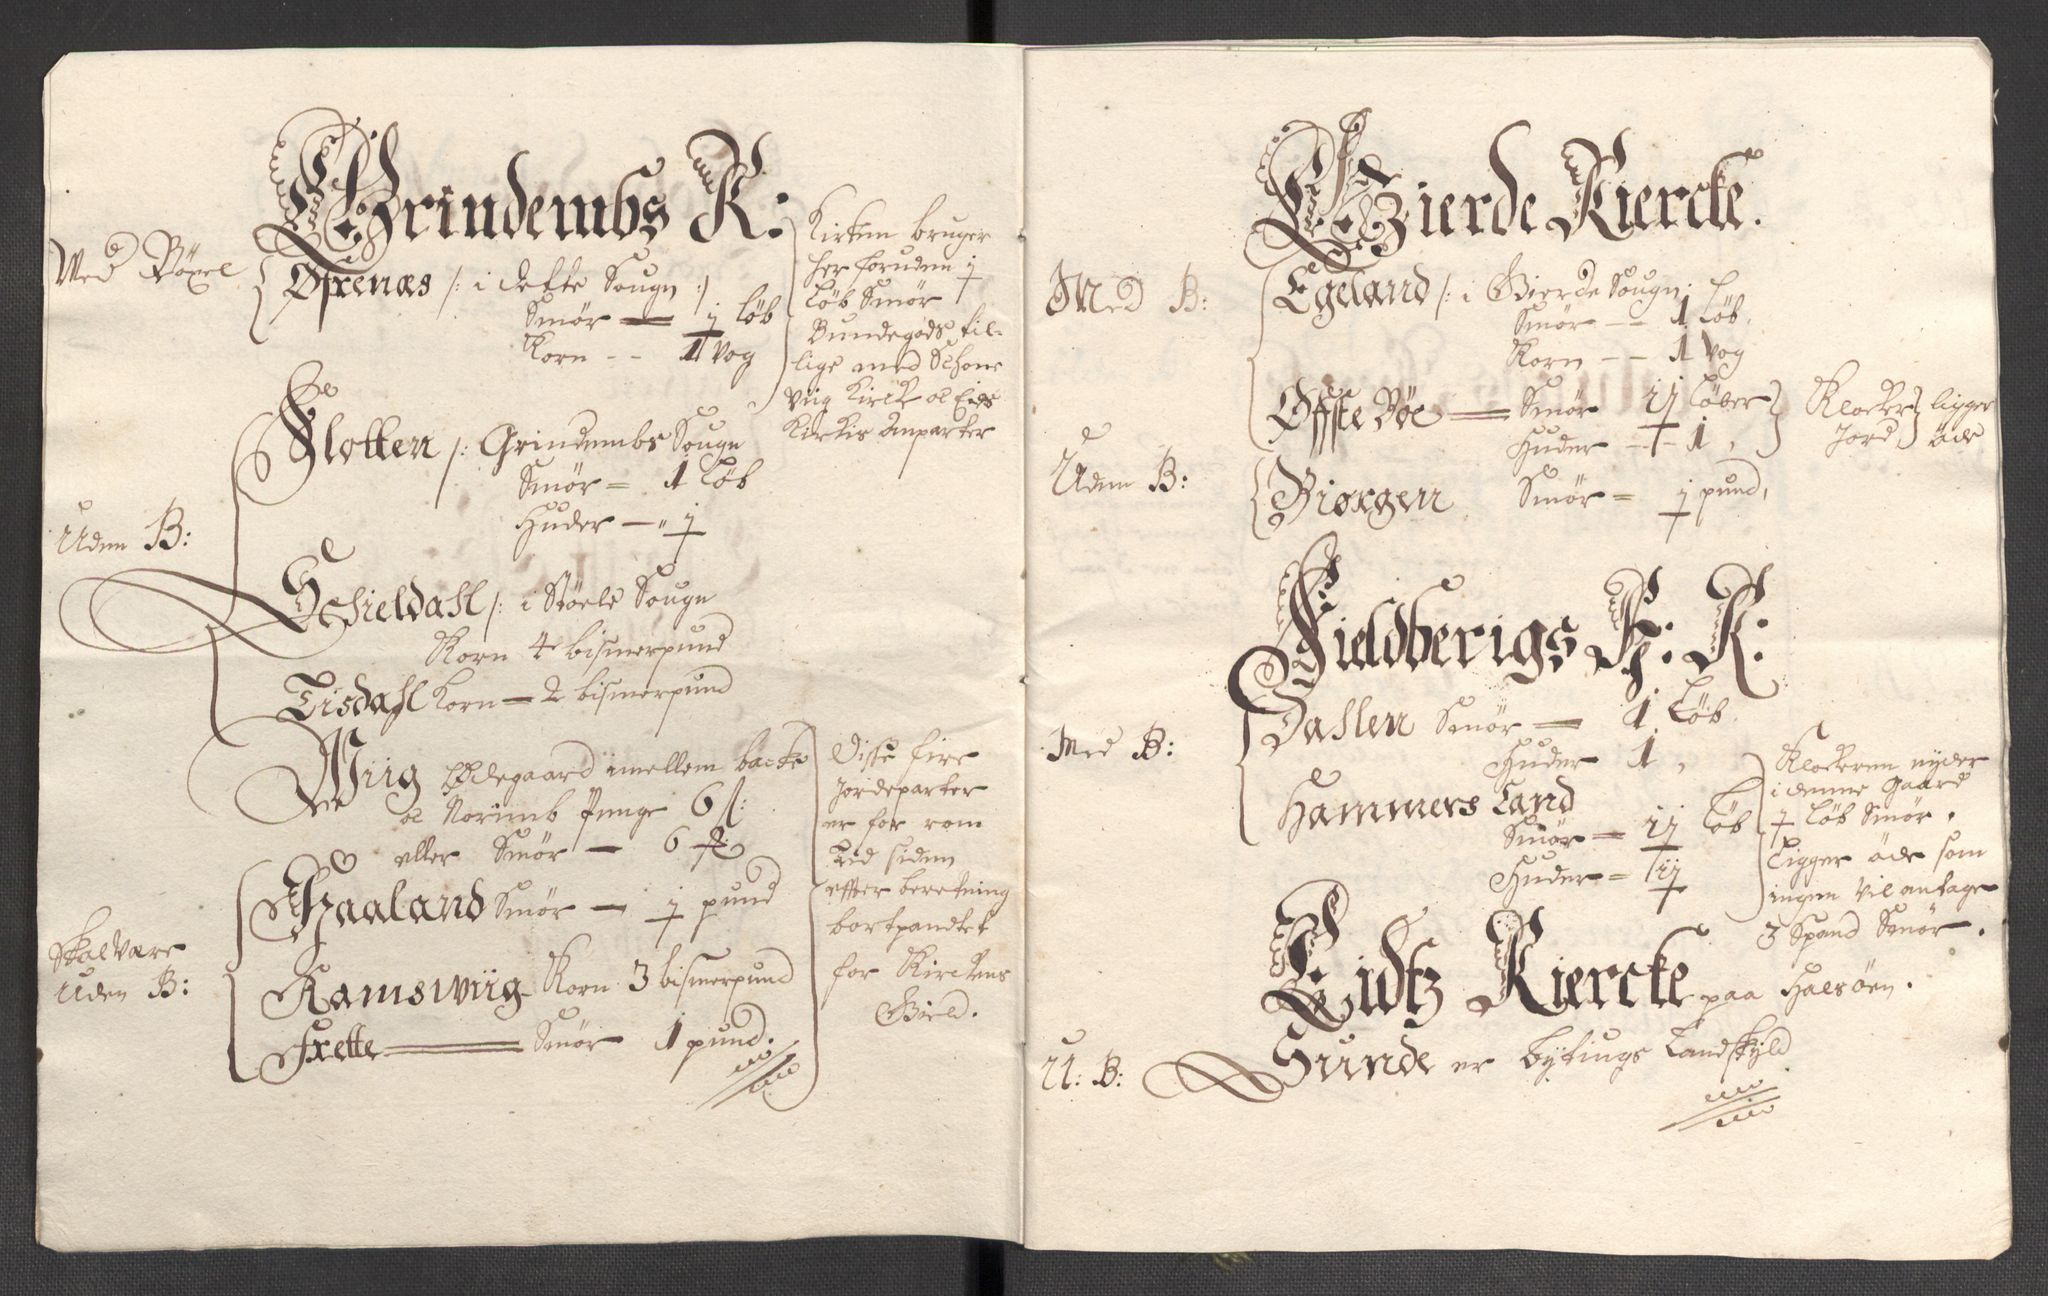 Grindembs K:
Med Böxel
Øfrenæs /: i dette Sougn :/
Smör — j Löb
Korn -- 1 Vog
Kirken bruger
her foruden j
Löb Smör
Bundegods til-
lige med Schone
Viig Kirck oc Eids
Kirkis Anparter
Flotten /: Grindembs Sougn
Smör = 1 Löb
Huder — j
Uden B:
Schieldahl /: i Støele Sougn
Korn 4 bismerpund
Tisdahl Korn — 2 bismerpund
Wiig Ødegaard imellem backe
oc Norimb Penge 6 ß:
eller Smör — 6
Disse fire
Jordeparter
er for rom
tid siden
effter beretning
bortpandtet
for Kirckens
Gield.
Skal være
Uden B:
Haaland Smör — j pund
Ramswiig Korn 3 bismerpund
Frette — Smör 1 pund.
Gierde Kiercke.
Med B:
Egeland /: i Gierde Sougn :
Smör — 1 Löb.
Korn -- 1 Vog
Øffste Böe — Smör ij Löber
Huder — 1,
Klocker Jord
ligger öde
Uden B:
Biorgen Smör = j pund,
Fieldberigs H: K:
Med B:
Dahlen Smör — 1 Löb.
Huder 1,
Hammers Land
Smör = ij Löb
Huder = iij
Klockeren nyder
i denne Gaard
j Löb Smör.
Ligger öde som
ingen Vil antage
3 Spand Smör.
Eidtz Kiercke paa Halsöen.
U: B:
Sunde er bytings Landskyld